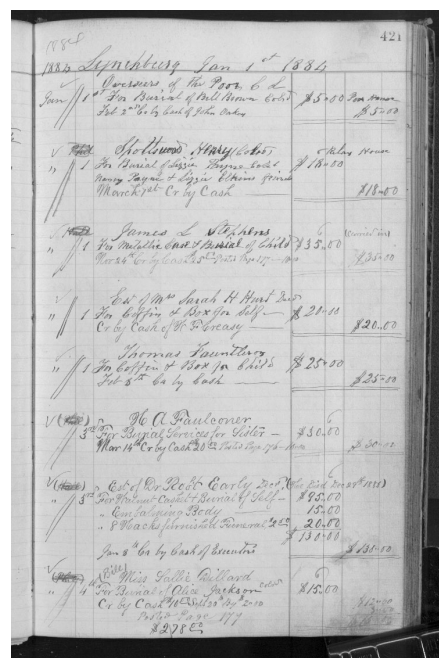 421
1884
1884 Lynchburg Jan 1st 1884
Overseers of the Poor C L
Jan 1st For Burial of Bell Brown Cold $5.00 Poor House
Feb 2nd Cr by Cash of John Oakes $5.00
Spottswood Henry Cold
" 1 For Burial of Lizzie Payne Cold $18.00 House
Nancy Payne & Lizzie
March 1st Cr by Cash $18.00
James L Stephens 6
" 1 For Metallic Case & Burial of Child $35.00
Mar 24th Cr by Cash 25 Posted Page 177 $35.00
Est of Mrs Sarah H Hurt Decd
" 1 For Coffin & Box for Self $20.00
Cr by Cash of W F Creasy $20.00
Thomas Fauntleroy
" 1 For Coffin & Box for Child $25.00
Feb 5th Cr by Cash $25.00
H A Faulconer 6
" 3rd For Burial Services for Sister $30.00
Mar 14th Cr by Cash 20 Posted Page 176 $30.00
Est of Dr Robt Early Decd (He Died Dec 29th 1883)
" 3rd For Walnut Casket & Burial of Self $95.00
" Embalming Body 15.00
" 8 Hacks furnished Funeral 20.00
$130.00
Jan 8th Cr by Cash of Executors $130.00
Miss Sallie Dillard 6
" 4 For Burial of Alice Jackson Cold $15.00
Cr by Cash
Posted Page 179
$278.00